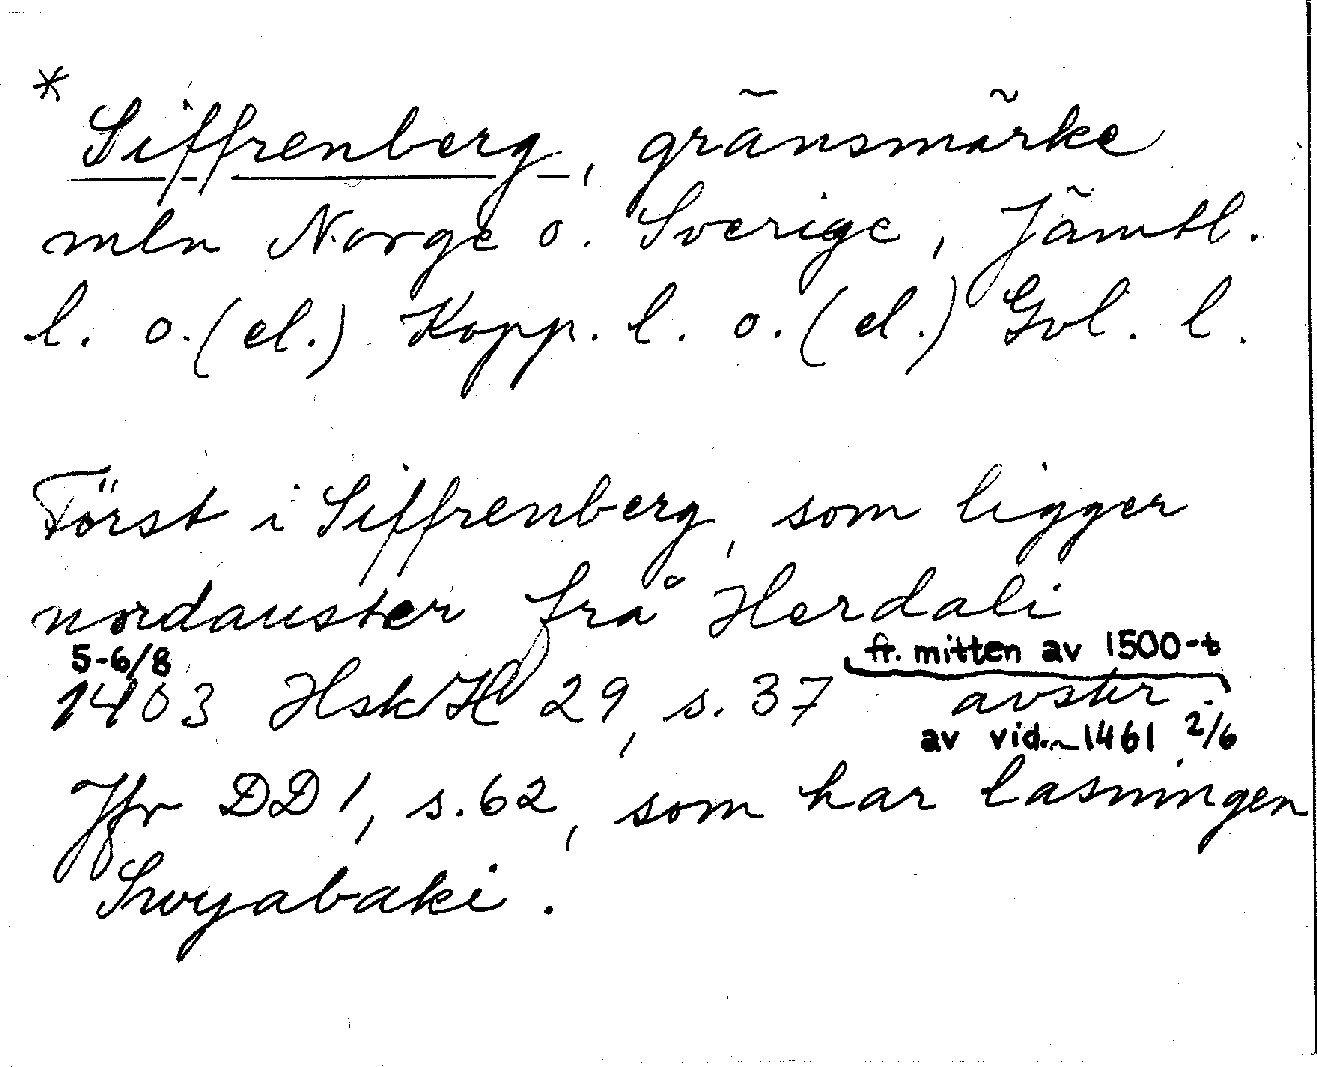 * Siffrenberg, gränsmärke
mln Norge o. Sverige, Jämtl.
l. o. (el.) Kopp. l. o. (el.) Gvl. l.
Först i Siffrenberg, som ligger
nordauster frå Herdali
5-6/8 fr. mitten av 1500-t
1403 HskH 29, s. 37 avskr.
av vid. 1461 2/6
Jfr DD 1, s. 62, som har läsningen
Swyabaki.